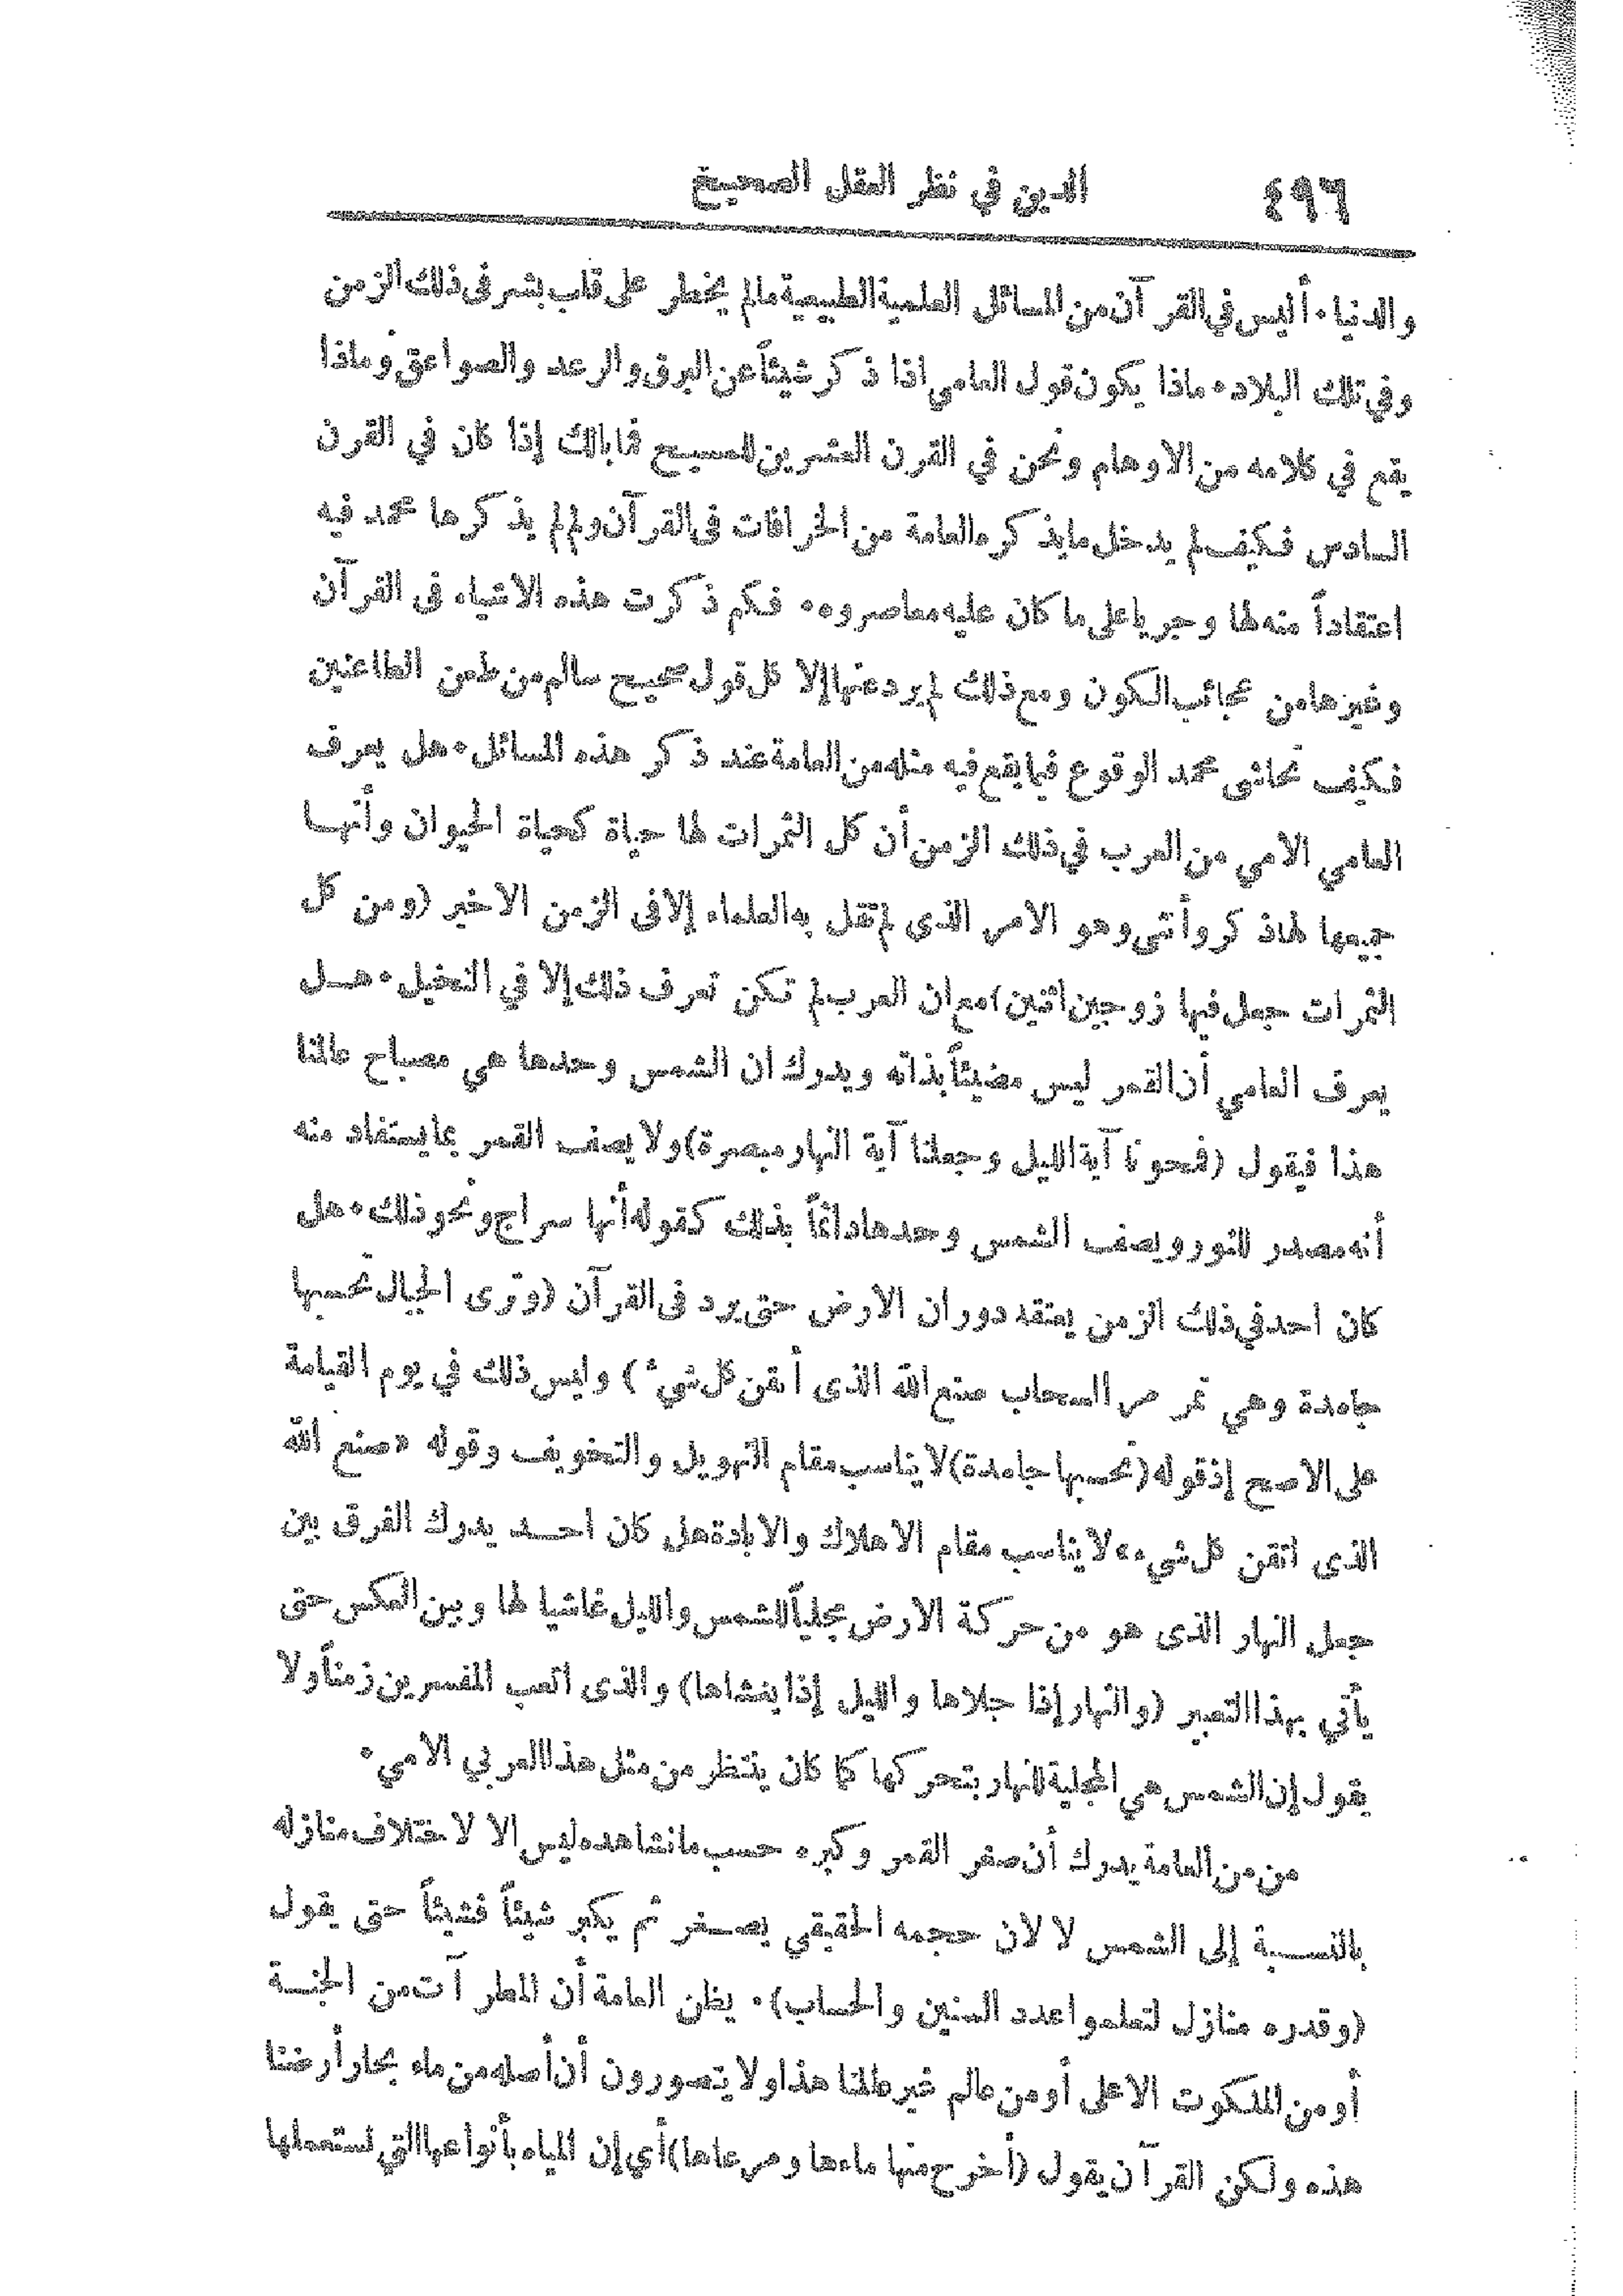 ٤٩٦ الدين في نظر العقل الصحيح
والدنيا • أليس في القرآن من المسائل العلمية الطبيعية مالم يخطر على قلب بشر فى ذلك الزمن
وفي تلك البلاد • ماذا يكون قول العامي اذا ذكر شيئاً عن البرق والرعد والصواعق وماذا
يقع في كلامه من الاوهام ونحن في القرن العشرين للمسيح فما بالك إذا كان في القرن
السادس فكيف لم يدخل مايذكره العامة من الخرافات فى القرآن ولم لم يذكرها محمد فيه
اعتقاداً منه لها وجريا على ما كان عليه معاصروه • فكم ذكرت هذه الاشياء فى القرآن
وغيرها من عجائب الكون ومع ذلك لم يرد عنها إلا كل قول صحيح سالم من طعن الطاعنين
فكيف تحاشى محمد الوقوع فيما يقع فيه مثله من العامة عند ذكر هذه المسائل • هل يعرف
العامي الامي من العرب في ذلك الزمن أن كل الثمرات لها حياة كحياة الحيوان وأنهـا
جميعها لها ذكر وأنثى وهو الامر الذى لم تقل به العلماء إلا فى الزمن الاخير (ومن كل
الثمرات جعل فيها زوجين اثنين) مع ان العرب لم تكن تعرف ذلك إلا في النخيل • هـل
يعرف العامي أن القمر ليس مضيئاً بذاته ويدرك ان الشمس وحدها هي مصباح عالمنا
هذا فيقول (فمحونا آية الليل وجعلنا آية النهار مبصرة) ولا يصف القمر بما يستفاد منه
أنه مصدر للنور ويصف الشمس وحدها دائماً بذلك كقوله أنها سراج ونحو ذلك • هل
كان احد في ذلك الزمن يعتقد دوران الارض حتى يرد فى القرآن (وترى الجبال تحسبها
جامدة وهي تمر مر السحاب صنع الله الذى أتقن كل شيء) وليس ذلك في يوم القيامة
على الاصح إذ قوله (تحسبها جامدة) لا يناسب مقام التهويل والتخويف وقوله «صنع الله
الذى اتقن كل شيء» لا يناسب مقام الاهلاك والابادة هل كان احـد يدرك الفرق بين
جعل النهار الذى هو من حركة الارض مجلياً للشمس والليل غاشيا لها وبين العكس حتى
يأتي بهذا التعبير (والنهار إذا جلاها والليل إذا يغشاها) والذى اتعب المفسرين زمناً ولا
يقول إن الشمس هي المجلية للنهار بتحركها كما كان ينتظر من مثل هذا العربي الامي •
من من العامة يدرك أن صغر القمر وكبره حسب ما نشاهده ليس الا لاختلاف منازله
بالنسـبة إلى الشمس لا لان حجمه الحقيقي يصـغر ثم يكبر شيئاً فشيئاً حتى يقول
(وقدره منازل لتعلموا عدد السنين والحساب) • يظن العامة أن المطر آت من الجنـة
أو من الملكوت الاعلى أو من عالم غير عالمنا هذا ولا يتصورون أن أصله من ماء بحار أرضنا
هذه ولكن القرآن يقول (أخرج منها ماءها ومرعاها) أي إن المياه بأنواعها التي نستعملها